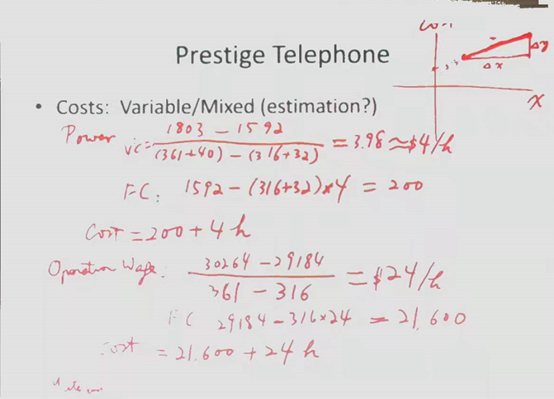 Prestige Telephone
• Costs: Variable/Mixed (estimation?)
Power VC = (1803 - 1592) / ((361+40) - (316+32)) = 3.98 ≈ $4/h
FC: 1592 - (316+32)×4 = 200
Cost = 200 + 4h
Operation Wage: (30264 - 29184) / (361 - 316) = $24/h
FC 29184 - 316×24 = 21,600
Cost = 21,600 + 24h
Δy
Δx
x